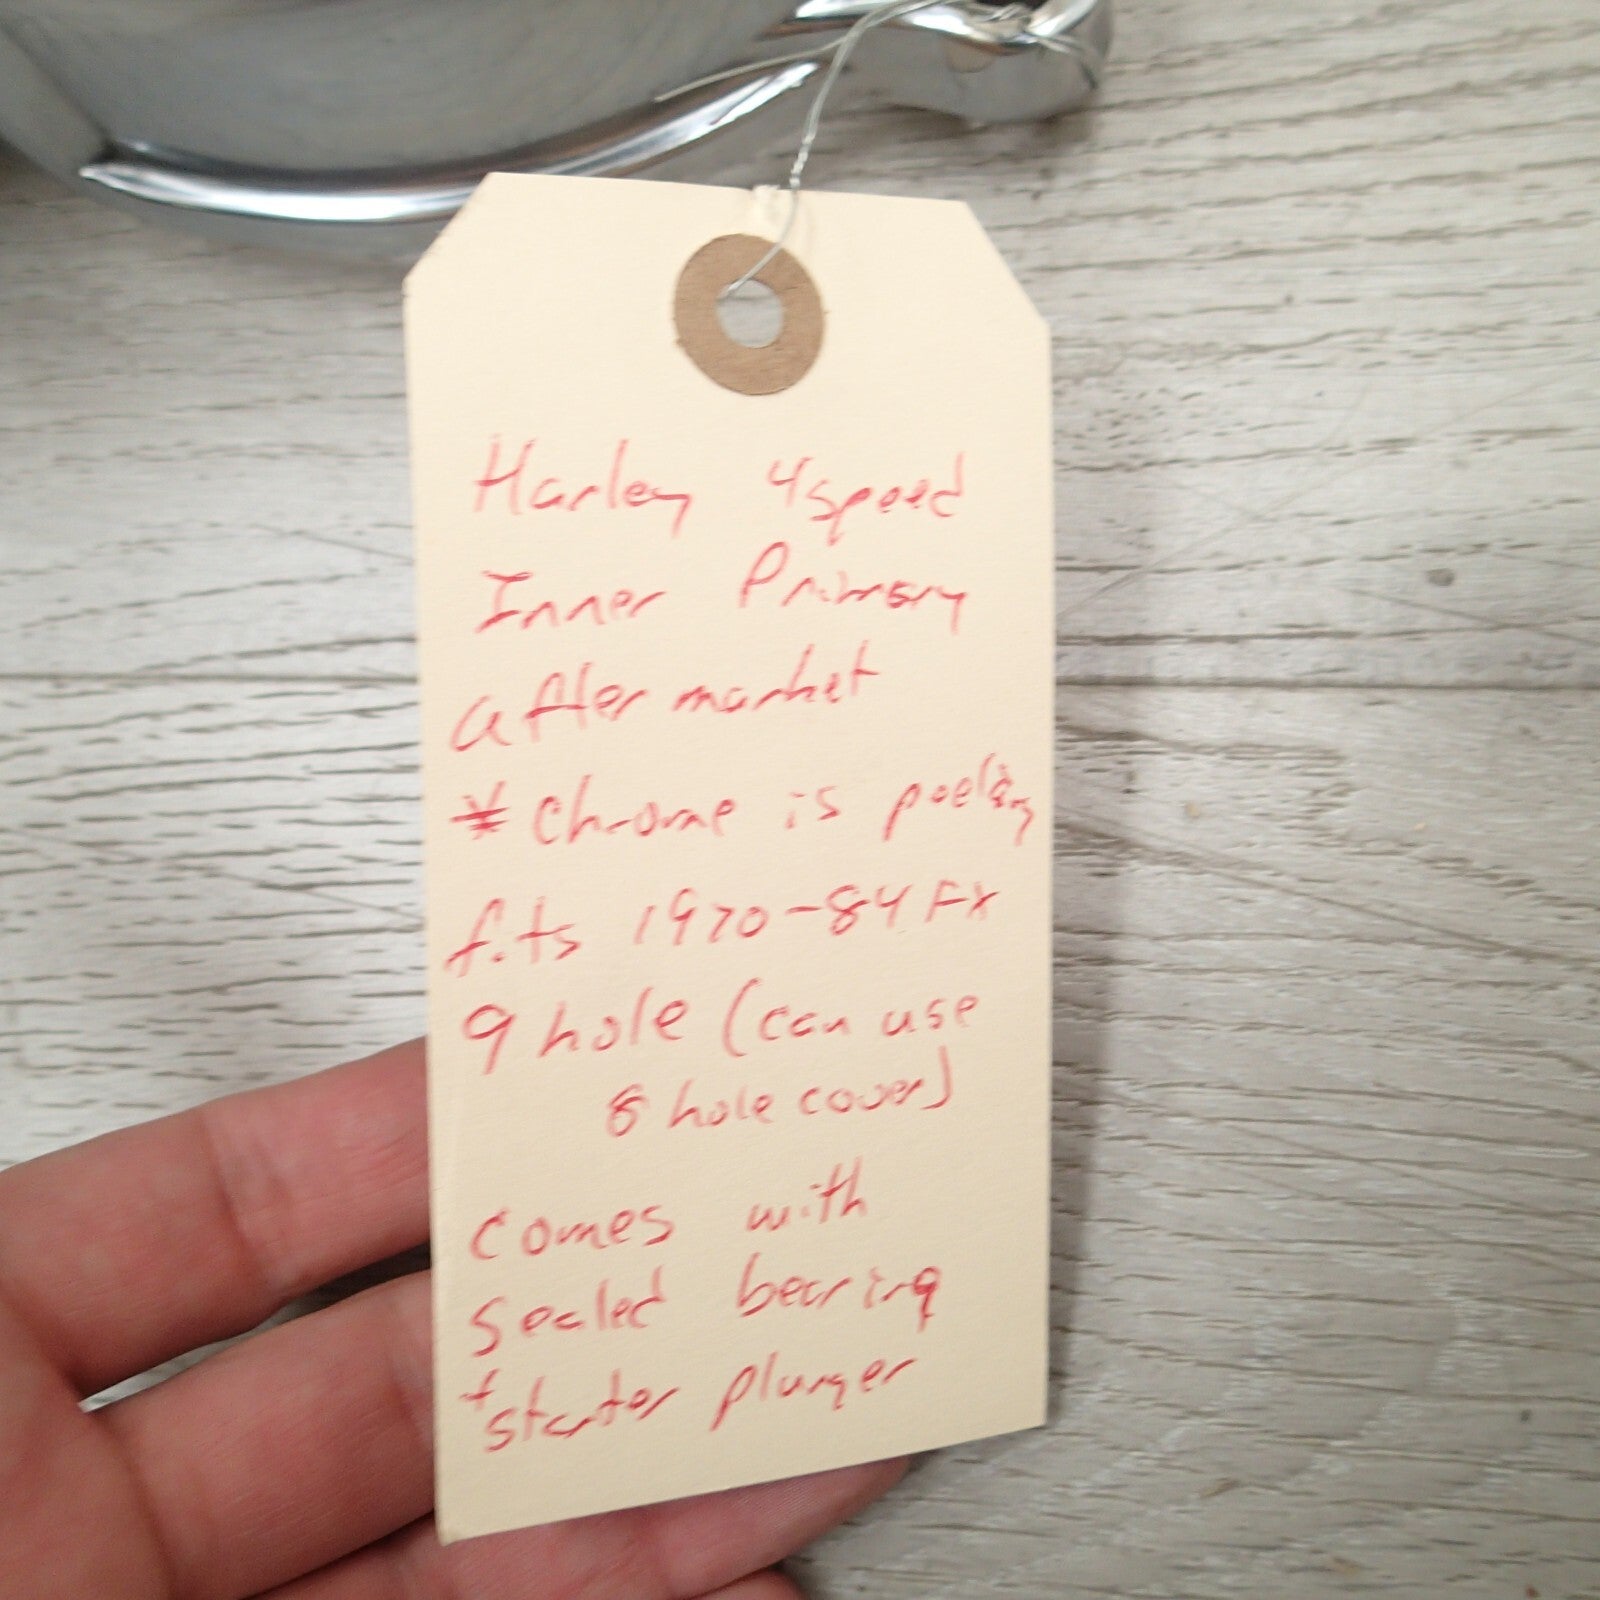 Harley 4speed
Inner Primary
aftermarket
* Chrome is peeling
fits 1970-84 FX
9 hole (can use
8 hole cover)
comes with
sealed bearing
+ starter plunger